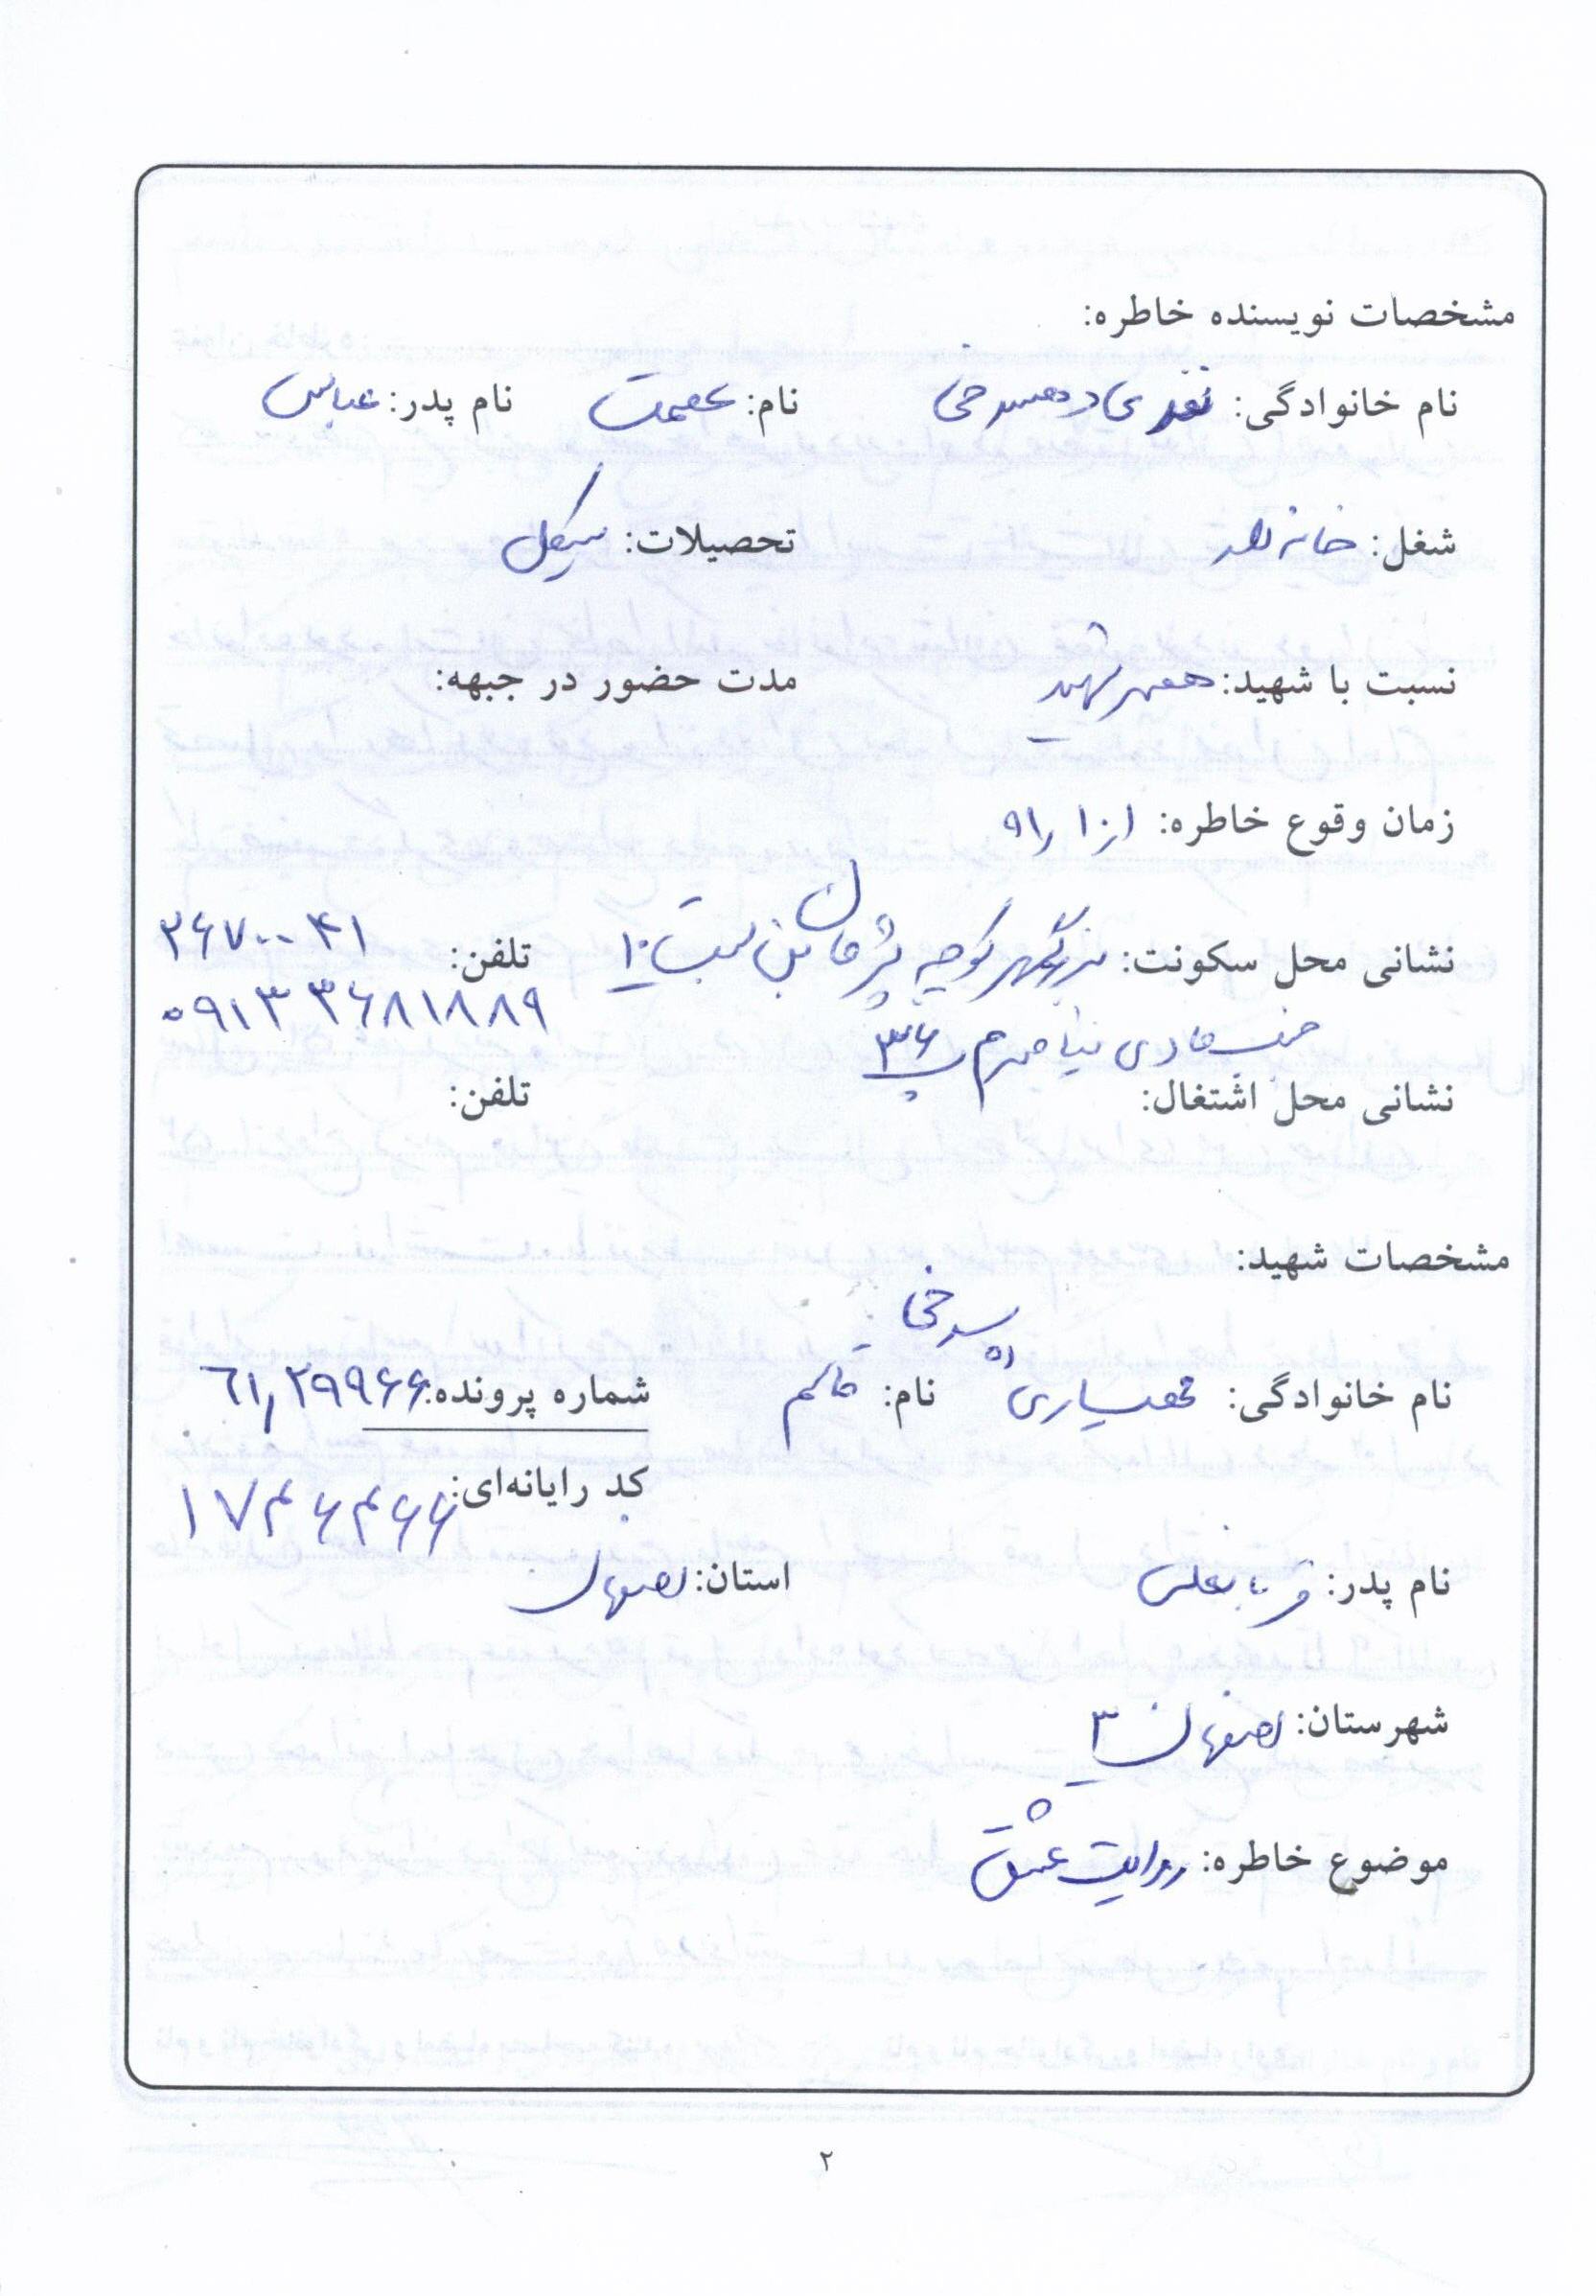 مشخصات نویسنده خاطره:
نام خانوادگی: نام: عصمت نام پدر: عباس
شغل: خانه دار تحصیلات: سیکل
نسبت با شهید: همسر شهید مدت حضور در جبهه:
زمان وقوع خاطره: ۹۱٫۱۰٫۱
نشانی محل سکونت: بزرگمهر کوچه پژمان بن بست ۱۰ تلفن: ۲۶۷۰۰۴۱
پ ۳۶ ۰۹۱۳۳۶۸۱۸۸۹
نشانی محل اشتغال: تلفن:
مشخصات شهید:
نام خانوادگی: نام: قاسم شماره پرونده: ۶۱٫۲۹۹۶۶
کد رایانه‌ای: ۱۷۴۶۴۶۶
نام پدر: قربانعلی استان: اصفهان
شهرستان: اصفهان ۳
موضوع خاطره: روایت عشق
۲